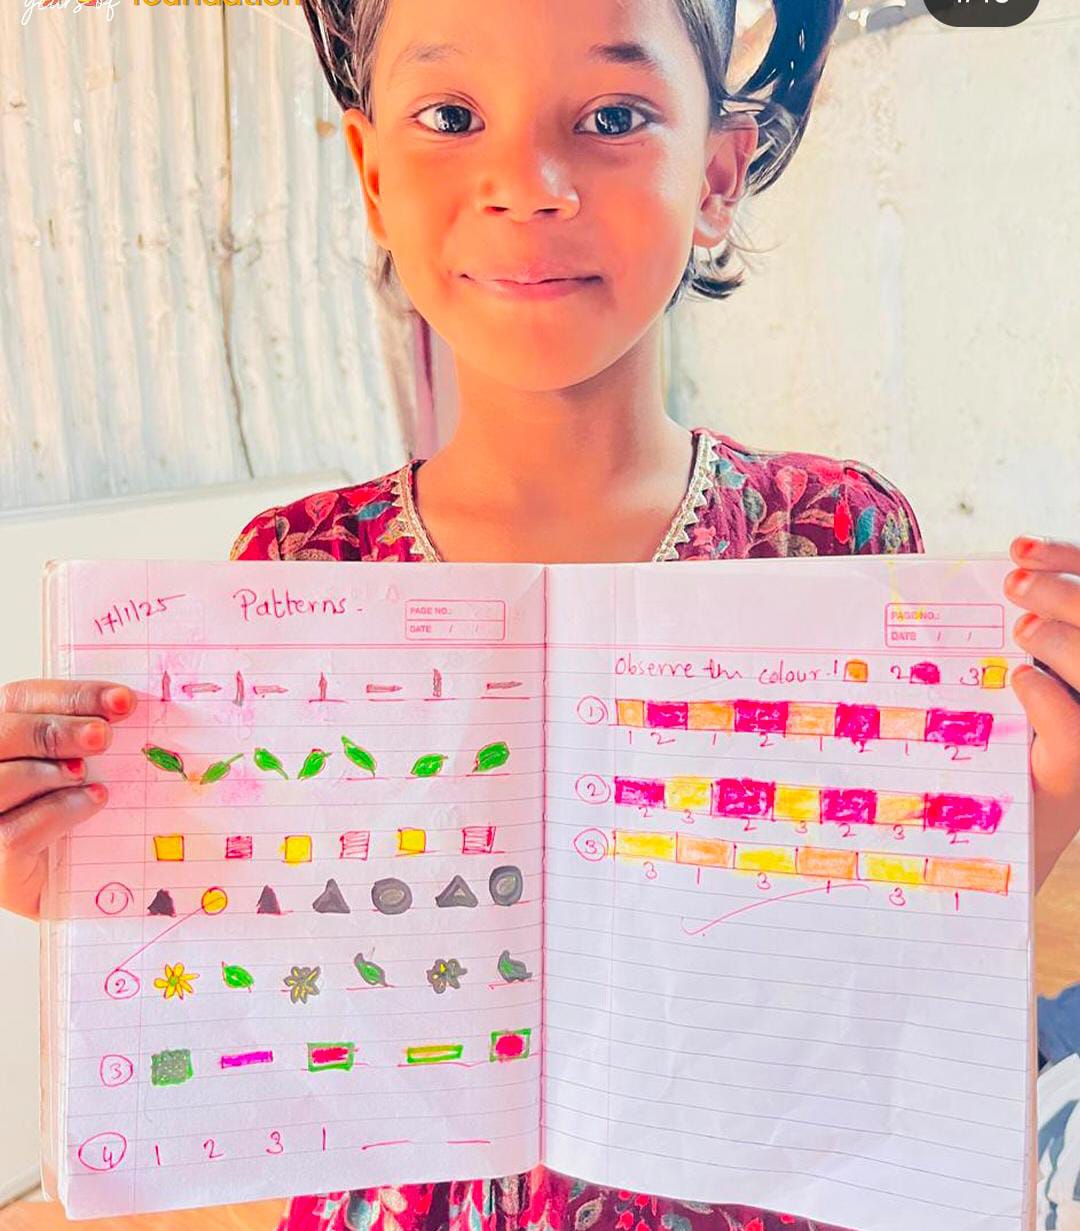 years of foundation
17/1/25 Patterns.
PAGE NO.:
DATE / /
①
②
③
④ 1 2 3 1
PAGE NO.:
DATE / /
Observe the colour. 1 2 3
①
1 2 1 2 1 2 1 2
②
2 3 2 3 2 3 2
③
3 1 3 1 3 1